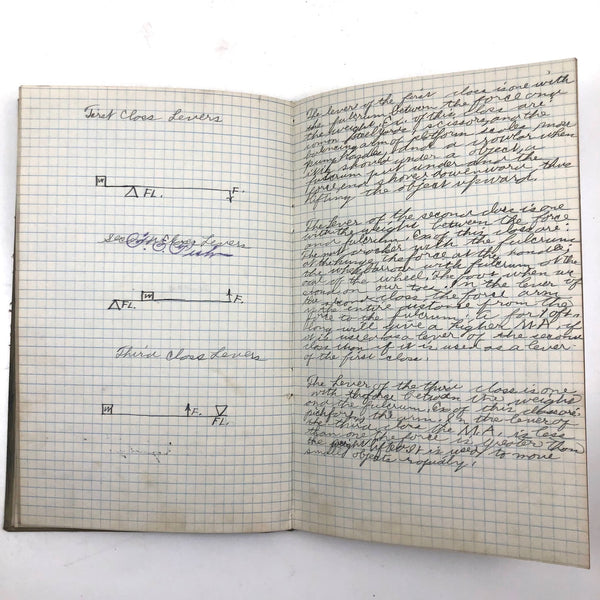 First Class Levers
W
FL. F.
Second Class Levers
W
FL. F.
Third Class Levers
W F.
FL.
The lever of the first class is one with
the fulcrum between the force and
the weight. Ex. of this class are:
common steelyards, scissors, and the
balancing arm of platform scales,
pump handles, and a crowbar when
shoved under a object, a
fulcrum put under and the
force end shoved downward thus
lifting the object upward.
The lever of the second class is one
with the weight between the force
and fulcrum. Ex. of this class are:
The nut cracker with the fulcrum
at the hinge, the force at the handle;
the wheelbarrow with fulcrum at the
of the wheel; the foot when we
stand on our toes. In the lever of
the second class the force arm
is the entire distance from the
force to the fulcrum; a
long will give a higher M.A. if
it is used as a lever of the second
class than if it is used as a lever
of the first class.
The Lever of the third class is one
with the force between the weight
and the fulcrum. Ex. of this class are:
the arm. In the lever of
the third class the M.A. is less
than one. The force is greater than
the weight. It is used to move
small objects rapidly.